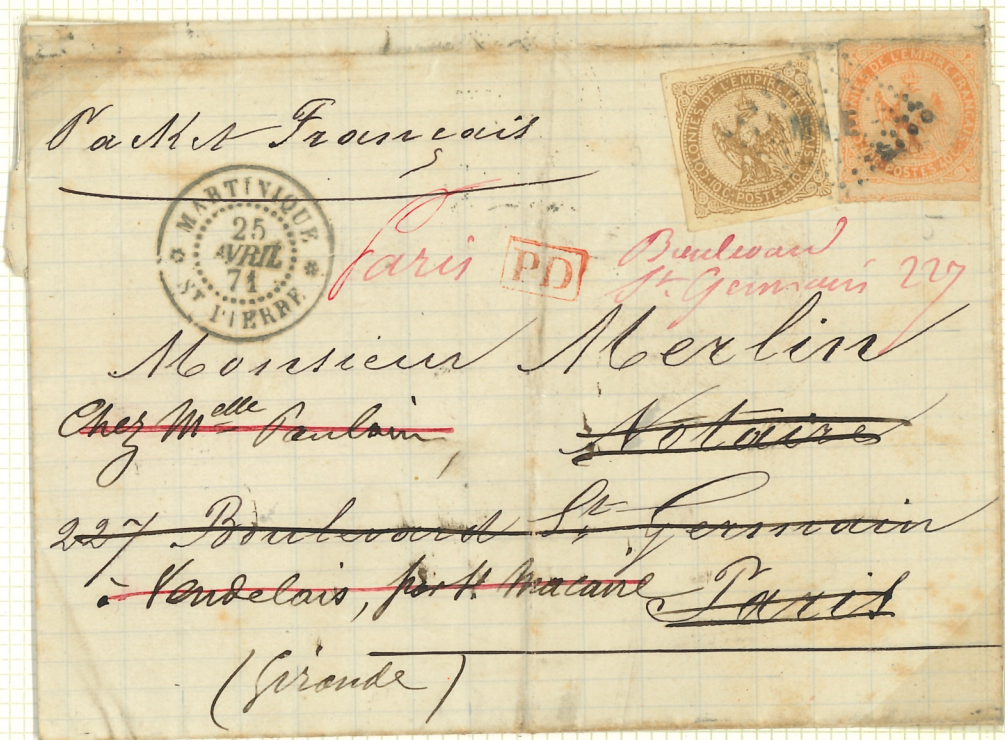 Packet Français
COLONIES DE L'EMPIRE FRANÇAISE
10 C. POSTES 10 C.
DE L'EMPIRE FRANÇAISE
POSTES
MARTINIQUE
25
AVRIL
71
ST PIERRE
Paris
PD
Boulevard
St. Germain 227
Monsieur Merlin
Chez Melle Poulain,
Notaire
227 Boulevard St. Germain
à Vendelais, par St. Macaire
Paris
(Gironde)